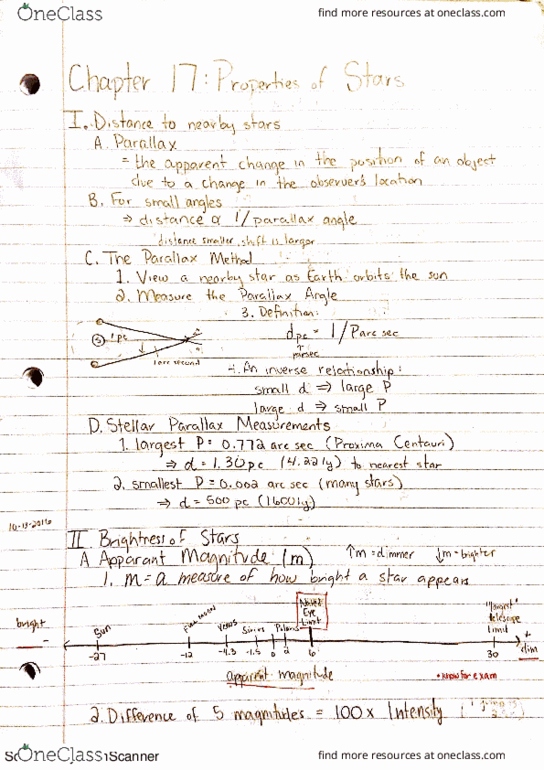 OneClass
find more resources at oneclass.com
Chapter 17: Properties of Stars
I. Distance to nearby stars
A. Parallax
= the apparent change in the position of an object
due to a change in the observer's location
B. For small angles
⇒ distance α 1/parallax angle
distance smaller, shift is larger
C. The Parallax Method
1. View a nearby star as Earth orbits the sun
2. Measure the Parallax Angle
3. Definition:
dpc = 1/Parc sec
parsec
1pc
1arc second
4. An inverse relationship:
small d ⇒ large P
large d ⇒ small P
D. Stellar Parallax Measurements
1. largest P = 0.772 arc sec (Proxima Centauri)
⇒ d = 1.30pc (4.22ly) to nearest star
2. smallest P = 0.002 arc sec (many stars)
⇒ d = 500 pc (1600ly)
10-13-2016
II Brightness of Stars
A Apparant Magnitude (m) ↑m = dimmer ↓m = brighter
1. m = a measure of how bright a star appears
bright Sun Full Moon Venus Sirius Polaris Naked Eye Limit "largest" telescope limit dim
-27 -12 -4.3 -1.5 0 2 6 30
apparent magnitude
• know for exam
2. Difference of 5 magnitudes = 100x Intensity
OneClass
Scanner
find more resources at oneclass.com